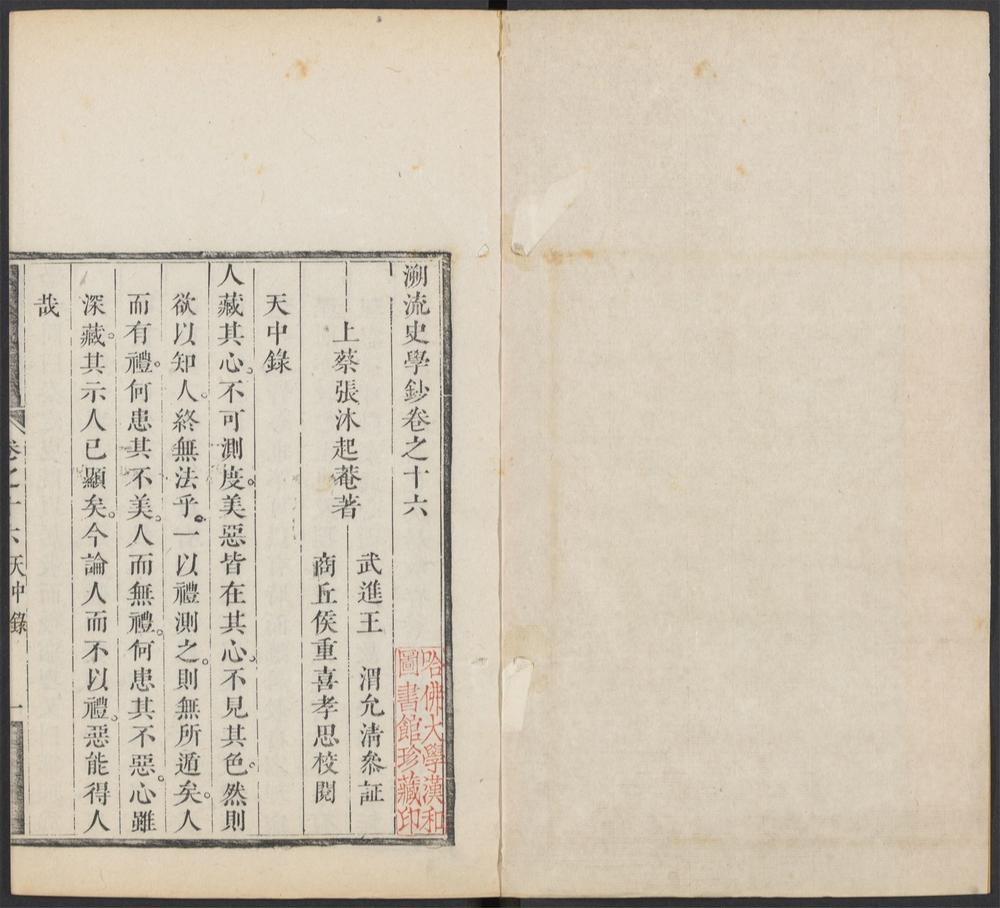 溯流史學鈔卷之十六
上蔡張沐起菴著
武進王　渭允清叅証
商丘侯重喜孝思校閱
天中錄
人藏其心。不可測度。美惡皆在其心。不見其色。然則
欲以知人。終無法乎。一以禮測之。則無所遁矣。人
而有禮。何患其不美。人而無禮。何患其不惡。心雖
深藏。其示人已顯矣。今論人而不以禮。惡能得人
哉
卷之十六 天中錄 一
哈佛大學漢和
圖書館珍藏印